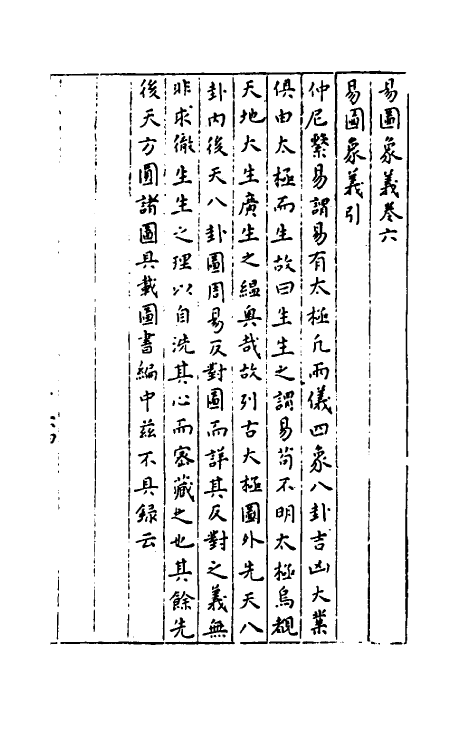 易圖象義卷六
易圖象義引
仲尼繫易謂易有太極凡兩儀四象八卦吉凶大業
俱由太極而生故曰生生之謂易茍不明太極烏覩
天地大生廣生之緼奧哉故列古太極圖外先天八
卦內後天八卦圖周易反對圖而詳其反對之義無
非求徹生生之理以自洗其心而密藏之也其餘先
後天方圓諸圖具載圖書編中茲不具錄云